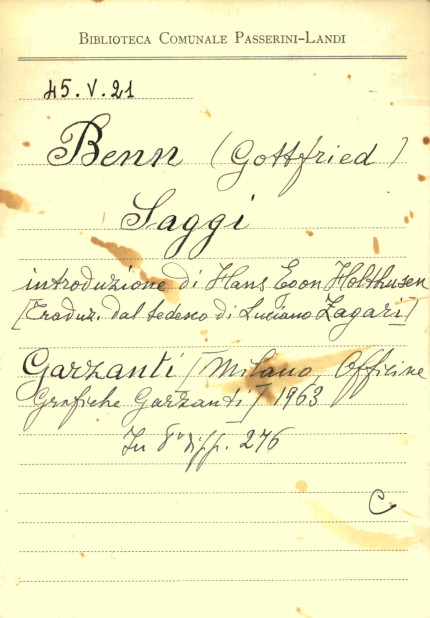 BIBLIOTECA COMUNALE PASSERINI-LANDI
45.V.21
Benn (Gottfried)
Saggi
introduzione di Hans Egon Holthusen
[Traduz. dal tedesco di Luciano Zagari]
Garzanti [Milano, Officine
Grafiche Garzanti] 1963
In 8° di pp. 276
C